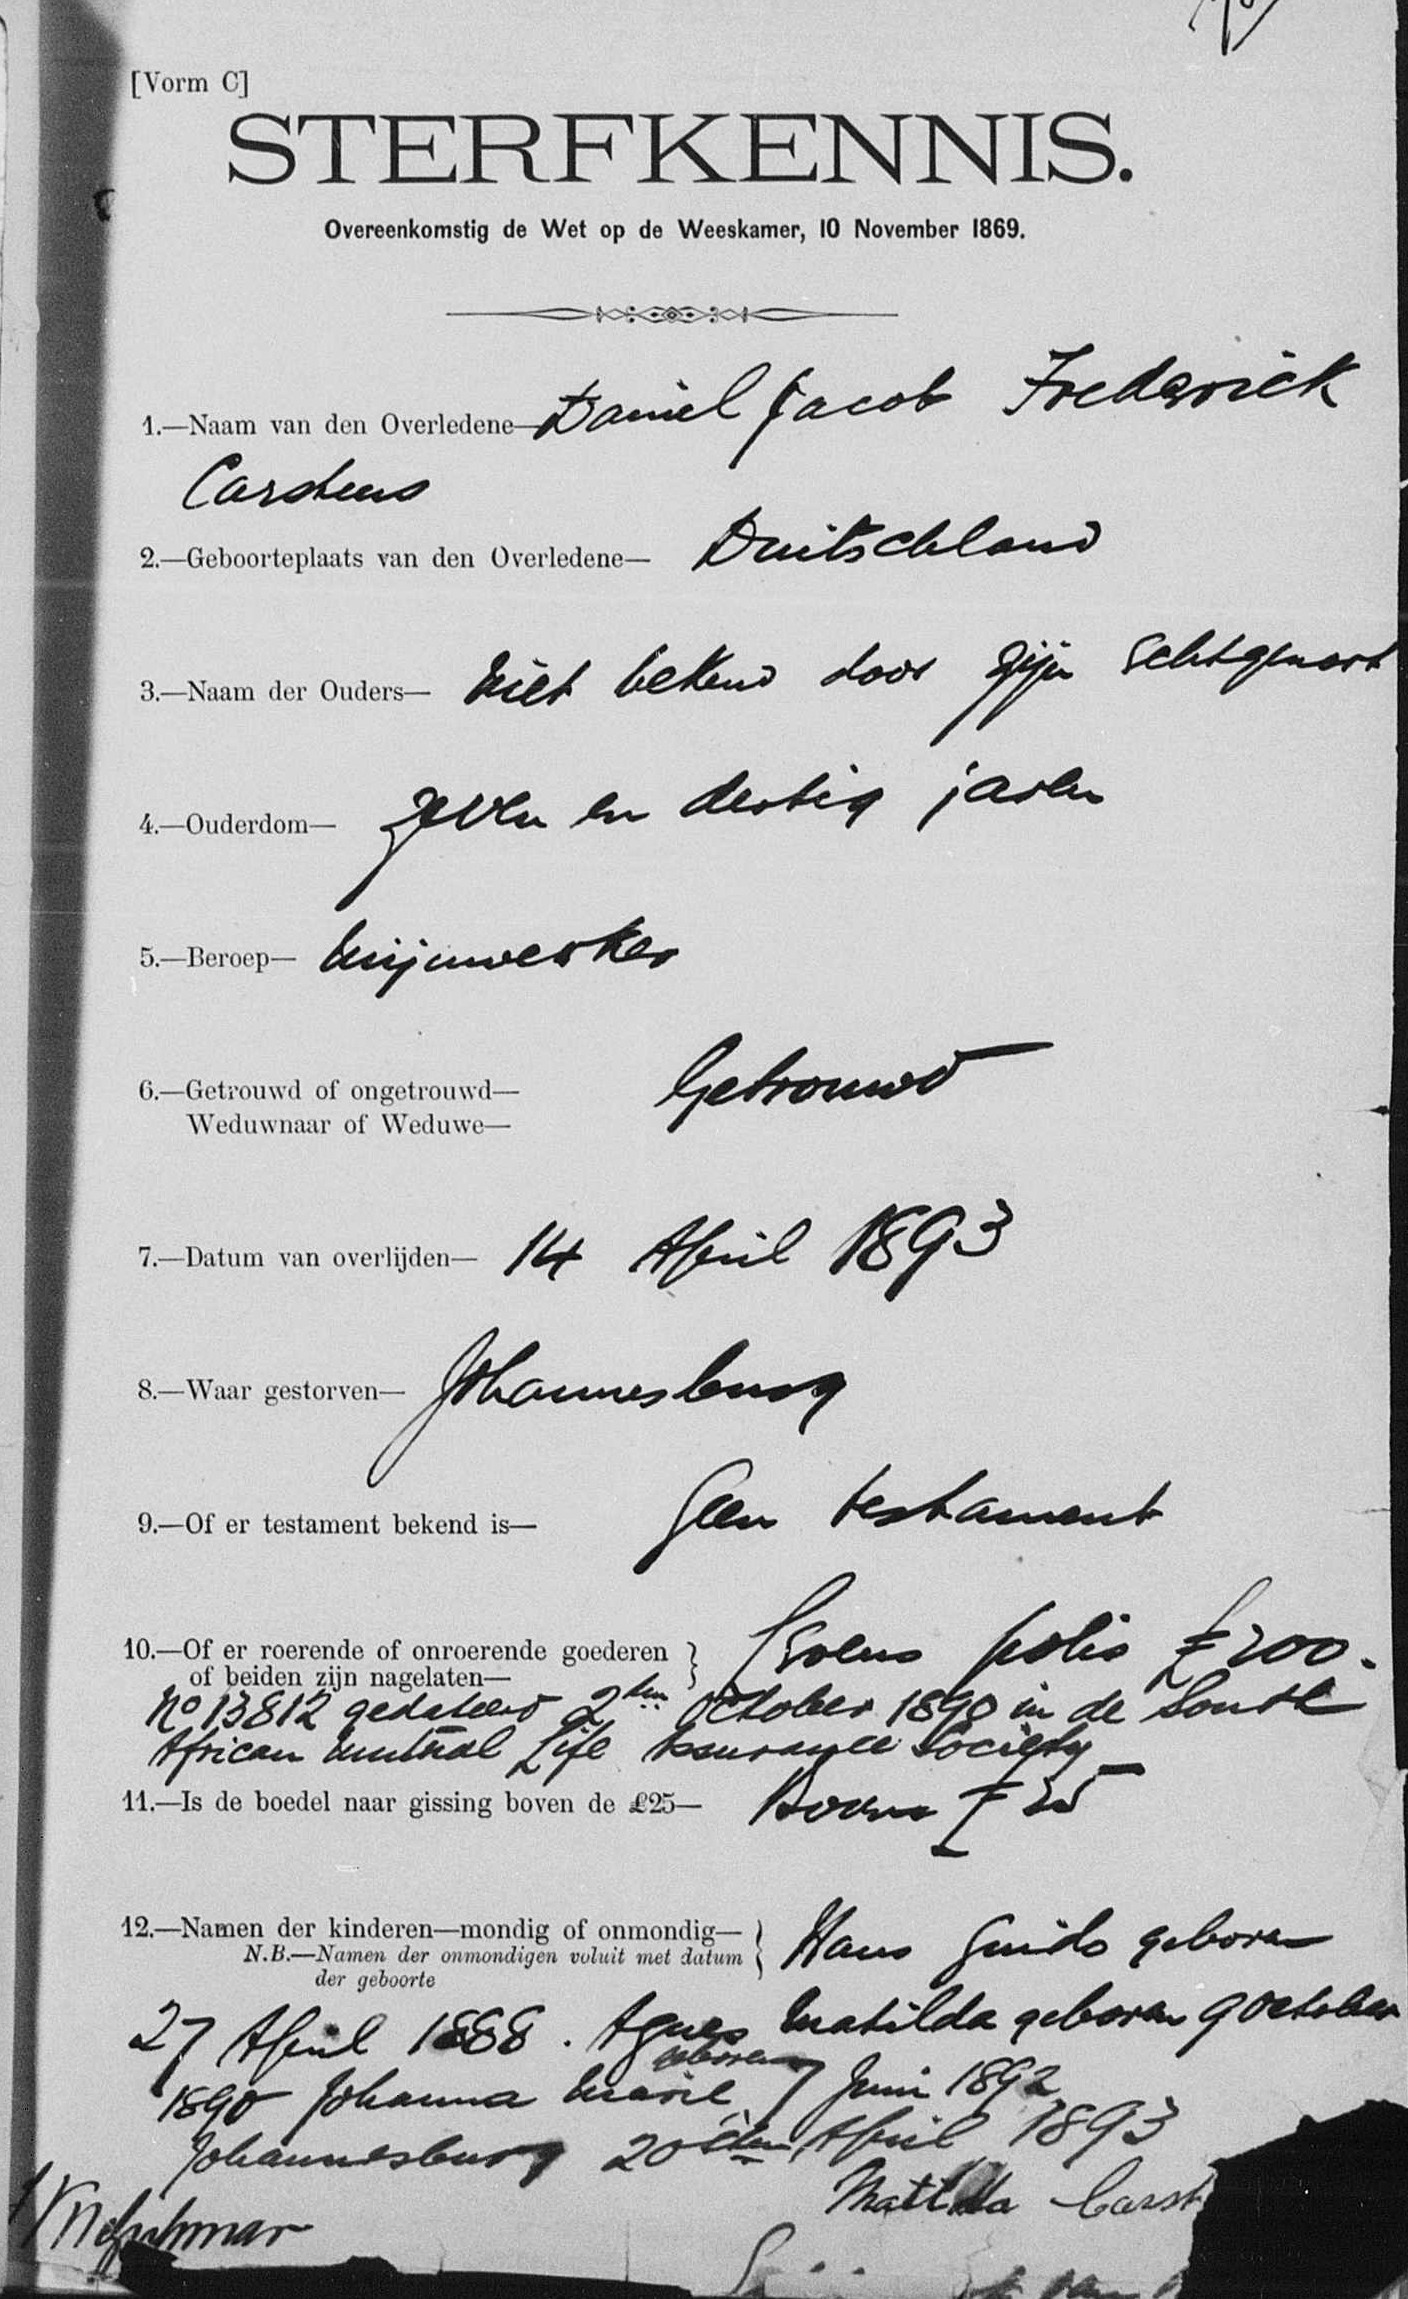 [Vorm C]
STERFKENNIS.
Overeenkomstig de Wet op de Weeskamer, 10 November 1869.
1.—Naam van den Overledene— Daniel Jacob Frederick
Carstens
2.—Geboorteplaats van den Overledene— Duitschland
3.—Naam der Ouders— Niet bekend door zijn Echtgenoot
4.—Ouderdom— Zeven en dertig jaren
5.—Beroep— Mijnwerker
6.—Getrouwd of ongetrouwd— Getrouwd
Weduwnaar of Weduwe—
7.—Datum van overlijden— 14 April 1893
8.—Waar gestorven— Johannesburg
9.—Of er testament bekend is— Geen testament
10.—Of er roerende of onroerende goederen } Levens polis £200.
of beiden zijn nagelaten—
No 13812 gedateerd 2den October 1890 in de South
African Mutual Life Assurance Society
11.—Is de boedel naar gissing boven de £25— Boven £25
12.—Namen der kinderen—mondig of onmondig— } Hans Guido geboren
N.B.—Namen der onmondigen voluit met datum
der geboorte
27 April 1888. Agnes Matilda geboren 9 October
geboren
1890 Johanna Marie 7 Juni 1892
Johannesburg 20sten April 1893
Matilda Carst